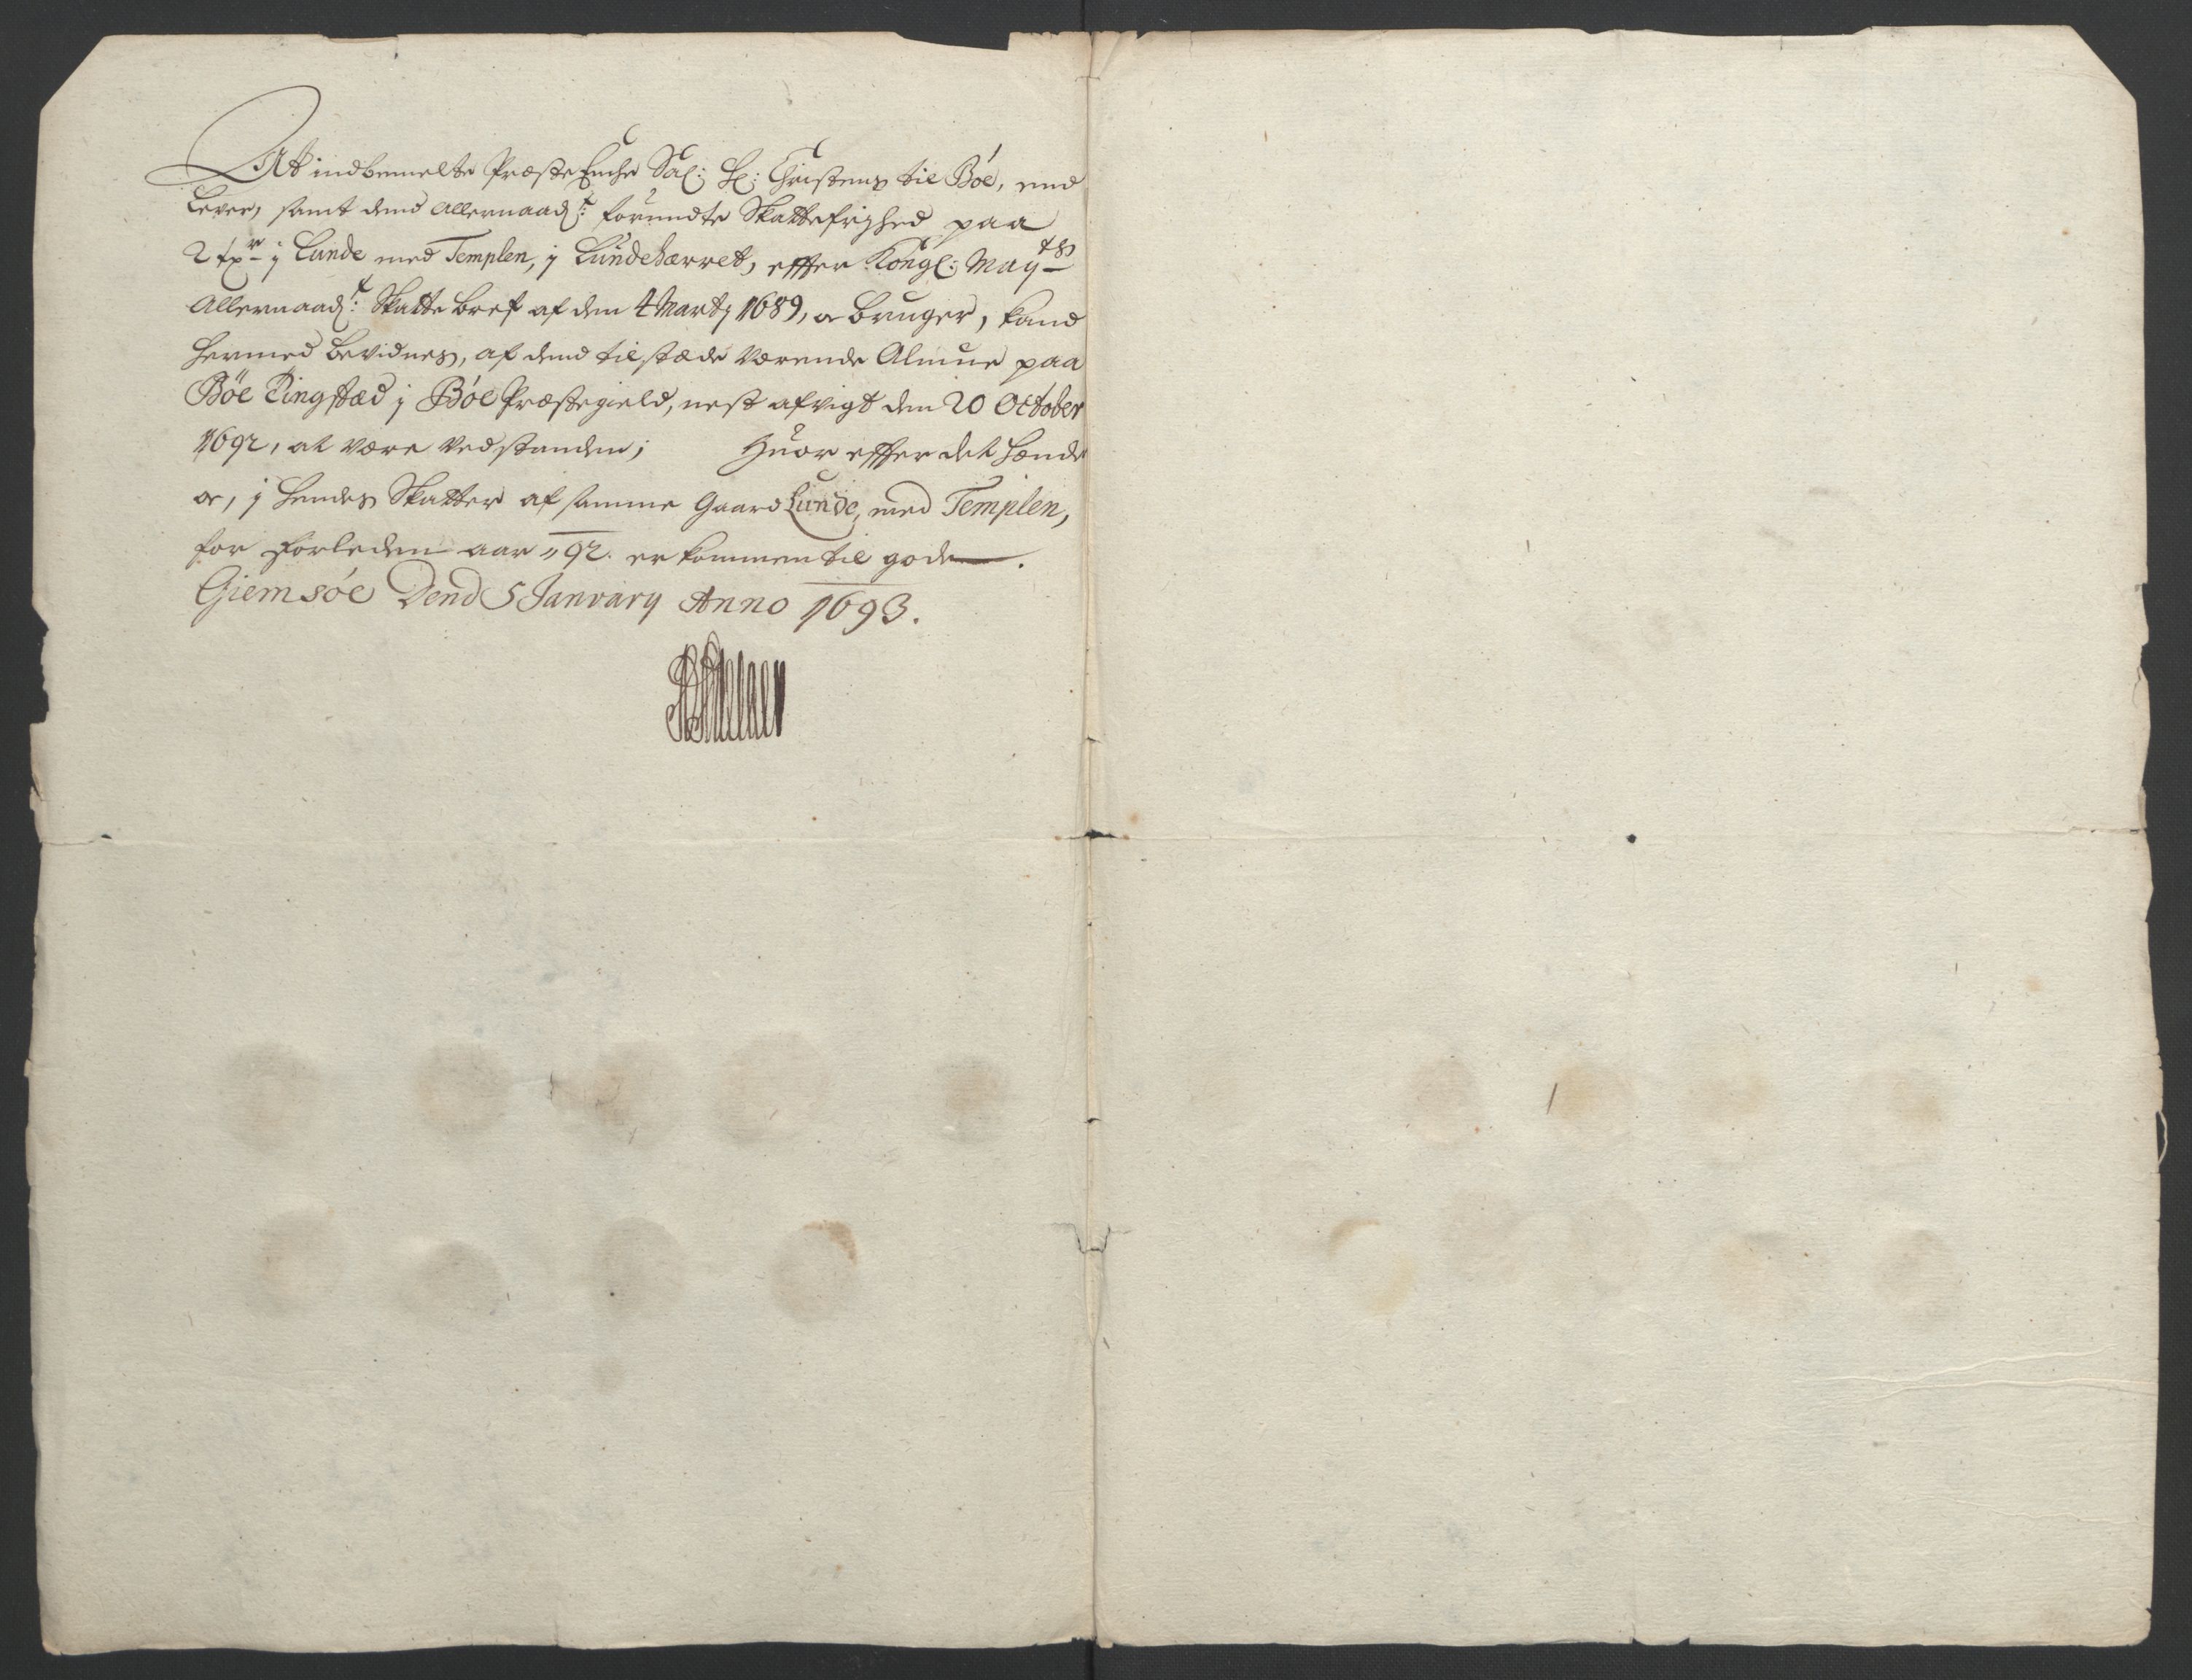 At indbemelte Præste Enche Sal: H: Christens til Böe, end
Lever, samt dend Allernaadst: forundte Skattefrihed paa
2 txr j Lunde med Templen, j Lundehærret, effter Kongl: Mayts
Allernaadst: Skatte bref af den 4 Martj 1689, a bruger, kand
hermed bevidnes, af dend tilstæde Værende Almue paa
Böe Tingstæd j Böe Præstegield, nest afvigt den 20 October
1692, at være Vedstanden; Huor effter det hænde
or, j hendes Skatter af samme Gaard Lunde, med Templen,
for forleden aar 92. er kommen til gode.
Giemsöe Dend 5 January Anno 1693.